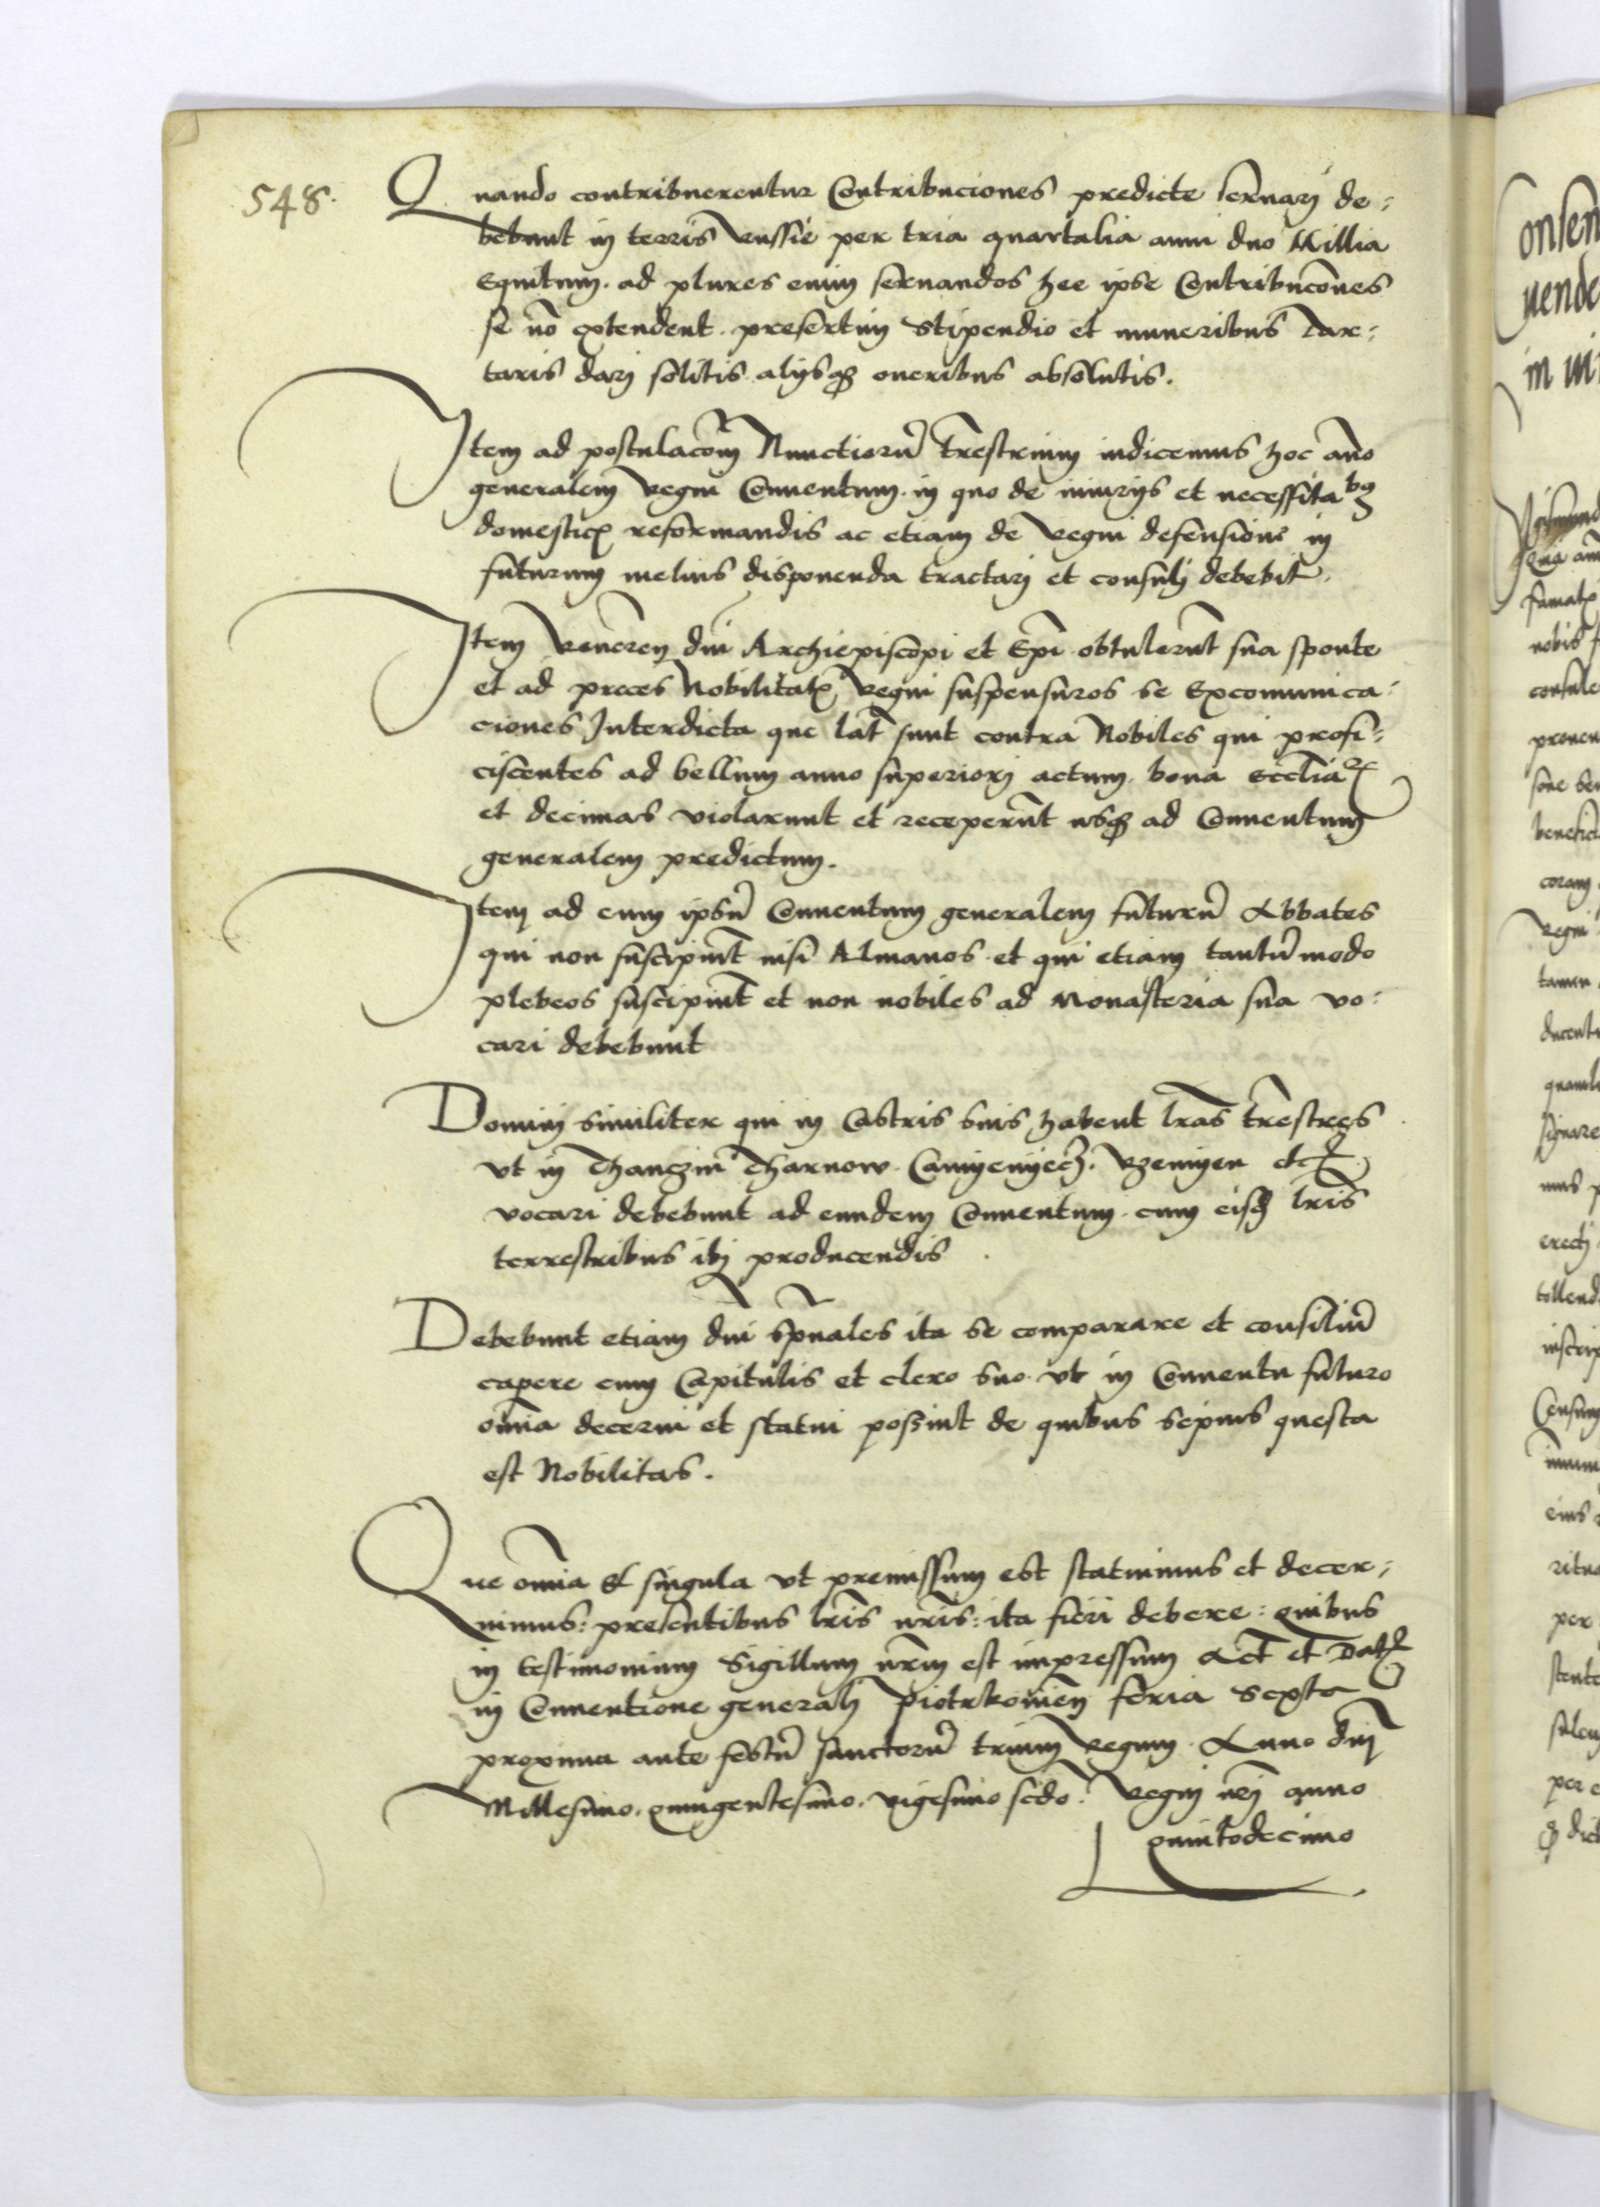 548.
Quando contribuerentur Contribuciones predicte servari de:
bebunt in terris Russie per tria quartalia anni duo Millia
Equitum. ad plures enim servandos hee ipse Contribucōnes
se nō extendent. presertim Stipendio et muneribus Tar:
taris dari solitis alijsqȝ oneribus absolutis.
Item ad postulacōem Nunctiorū trestrium indicemus hoc anō
generalem regni Conventum. in quo de iniurijs et necessitabȝ
domesticꝭ reformandis ac etiam de regni defensione in
futurum melius disponenda tractari et consuli debebit.
Item Veneren dni Archiepiscopi et Epi obtulerūt sua sponte
et ad preces Nobilitatꝭ regni suspensuros se Excomunica:
ciones Interdicta que lat sunt contra Nobiles qui profi:
ciscentes ad bellum anno superiori actum. bona eccliaꝝ
et decimas violarunt et receperūt usqȝ ad Conventum
generalem predictum.
Item ad eum ipsū Conventum generalem futurū Abbates
qui non suscipiūt nisi Almanos. et qui etiam tantūmodo
plebeos suscipiūt et non nobiles ad Monasteria sua vo:
cari debebunt
Domini similiter qui in Castris suis habent lras trestres
vt in Thanczin Tharnow. Camyenyecz. etcꝭ
vocari debebunt ad eundem Conventum. cum eisdȝ lris
terrestribus ibi producendis.
Debebunt etiam dni spūales ita se comparare et consiliū
capere cum Capitulis et clero suo. vt in Conventu futuro
omia decerni et statui possint de quibus sepius questa
est Nobilitas.
Que omia et singula vt premissum est statuimus et decer:
nimus: presentibus lris nris: ita fieri debere: quibus
in testimonium Sigillum nrm est impressum Act et Datꝭ
in Conventione generali Piotrkovien feria Sexta
proxima ante festū sanctorū trium regum. Anno dni
Millesimo. quingentesimo. vigesimo scdo. Regni nri anno
quintodecimo